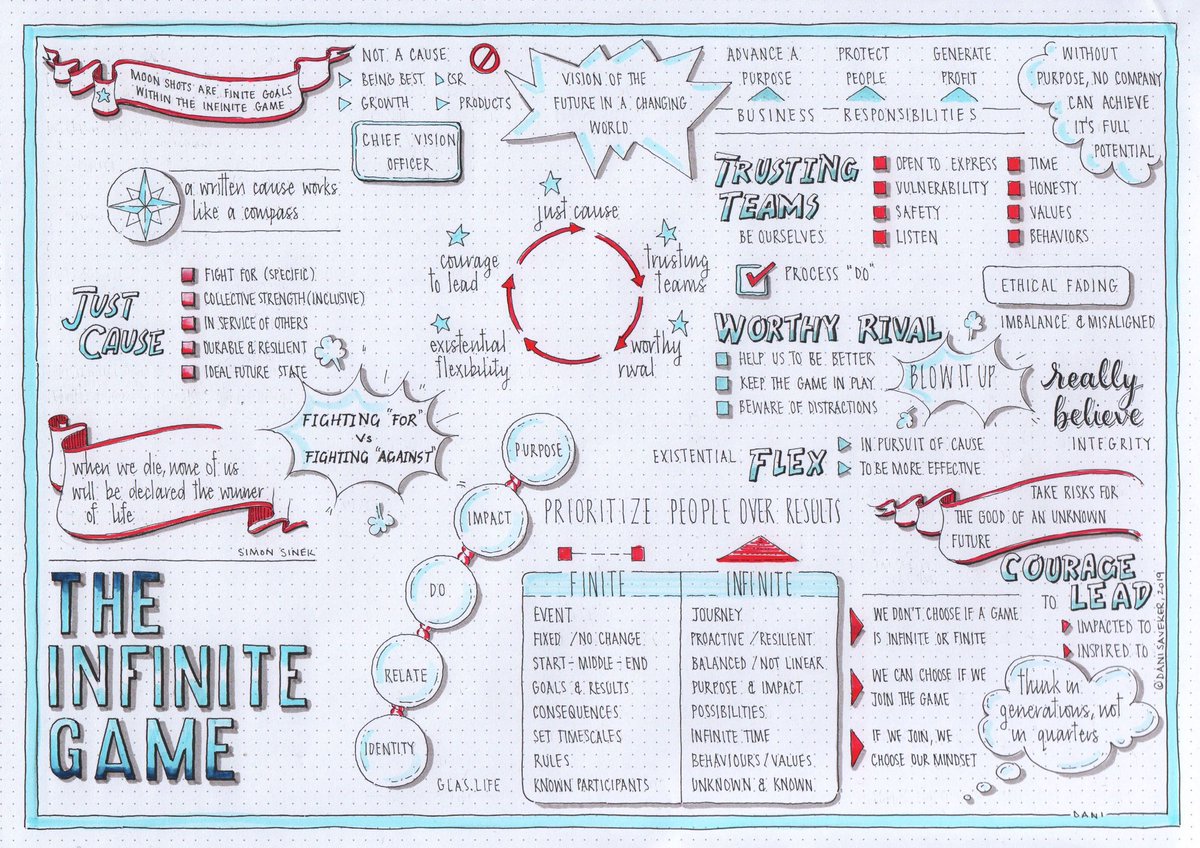 MOON SHOTS ARE FINITE GOALS
WITHIN THE INFINITE GAME
NOT A CAUSE
BEING BEST
CSR
GROWTH
PRODUCTS
CHIEF VISION
OFFICER
VISION OF THE
FUTURE IN A CHANGING
WORLD
ADVANCE A
PURPOSE
PROTECT
PEOPLE
GENERATE
PROFIT
BUSINESS RESPONSIBILITIES
WITHOUT
PURPOSE, NO COMPANY
CAN ACHIEVE
IT'S FULL
POTENTIAL
a written cause works
like a compass
TRUSTING
TEAMS
BE OURSELVES
OPEN TO EXPRESS
VULNERABILITY
SAFETY
LISTEN
TIME
HONESTY
VALUES
BEHAVIORS
PROCESS "DO"
ETHICAL FADING
IMBALANCE & MISALIGNED
just cause
trusting
teams
worthy
rival
existential
flexibility
courage
to lead
JUST
CAUSE
FIGHT FOR (SPECIFIC)
COLLECTIVE STRENGTH (INCLUSIVE)
IN SERVICE OF OTHERS
DURABLE & RESILIENT
IDEAL FUTURE STATE
WORTHY RIVAL
HELP US TO BE BETTER
KEEP THE GAME IN PLAY
BEWARE OF DISTRACTIONS
BLOW IT UP
really
believe
INTEGRITY
FIGHTING "FOR"
VS
FIGHTING "AGAINST"
EXISTENTIAL FLEX
IN PURSUIT OF CAUSE
TO BE MORE EFFECTIVE
when we die, none of us
will be declared the winner
of life
SIMON SINEK
PURPOSE
IMPACT
DO
RELATE
IDENTITY
PRIORITIZE PEOPLE OVER RESULTS
TAKE RISKS FOR
THE GOOD OF AN UNKNOWN
FUTURE
COURAGE
TO LEAD
IMPACTED TO
INSPIRED TO
THE
INFINITE
GAME
GLAS.LIFE
FINITE
EVENT
FIXED / NO CHANGE
START-MIDDLE-END
GOALS & RESULTS
CONSEQUENCES
SET TIMESCALES
RULES
KNOWN PARTICIPANTS
INFINITE
JOURNEY
PROACTIVE / RESILIENT
BALANCED / NOT LINEAR
PURPOSE & IMPACT
POSSIBILITIES
INFINITE TIME
BEHAVIOURS / VALUES
UNKNOWN & KNOWN
WE DON'T CHOOSE IF A GAME
IS INFINITE OR FINITE
WE CAN CHOOSE IF WE
JOIN THE GAME
IF WE JOIN, WE
CHOOSE OUR MINDSET
think in
generations, not
in quarters
© DANI SAVEKER, 2019
DANI